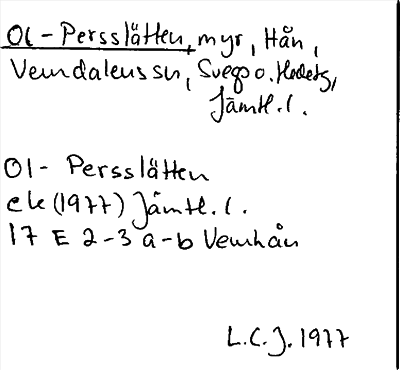 Ol-Persslätten, myr, Hån,
Vemdalens sn, Svegs o. Hedets,
Jämtl. l.
Ol- Persslätten
ek (1977) Jämtl. l.
17 E 2-3 a-b Vemhån
L.C.J. 1977